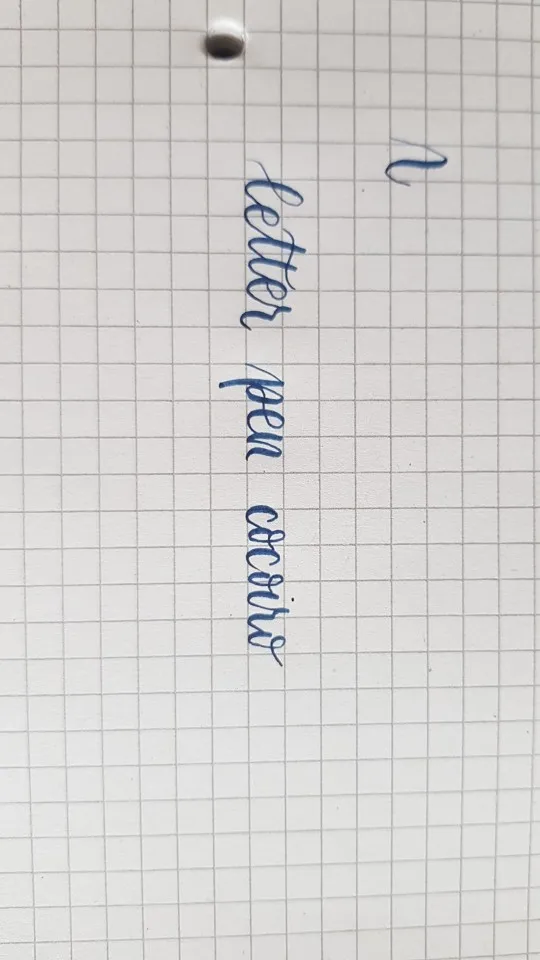 letter pen cocoiro